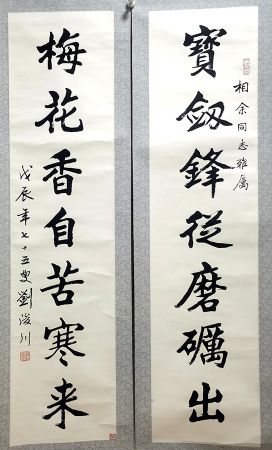 相余同志雅属
寶劔鋒從磨礪出
梅花香自苦寒来
戊辰年七十五叟劉浚川